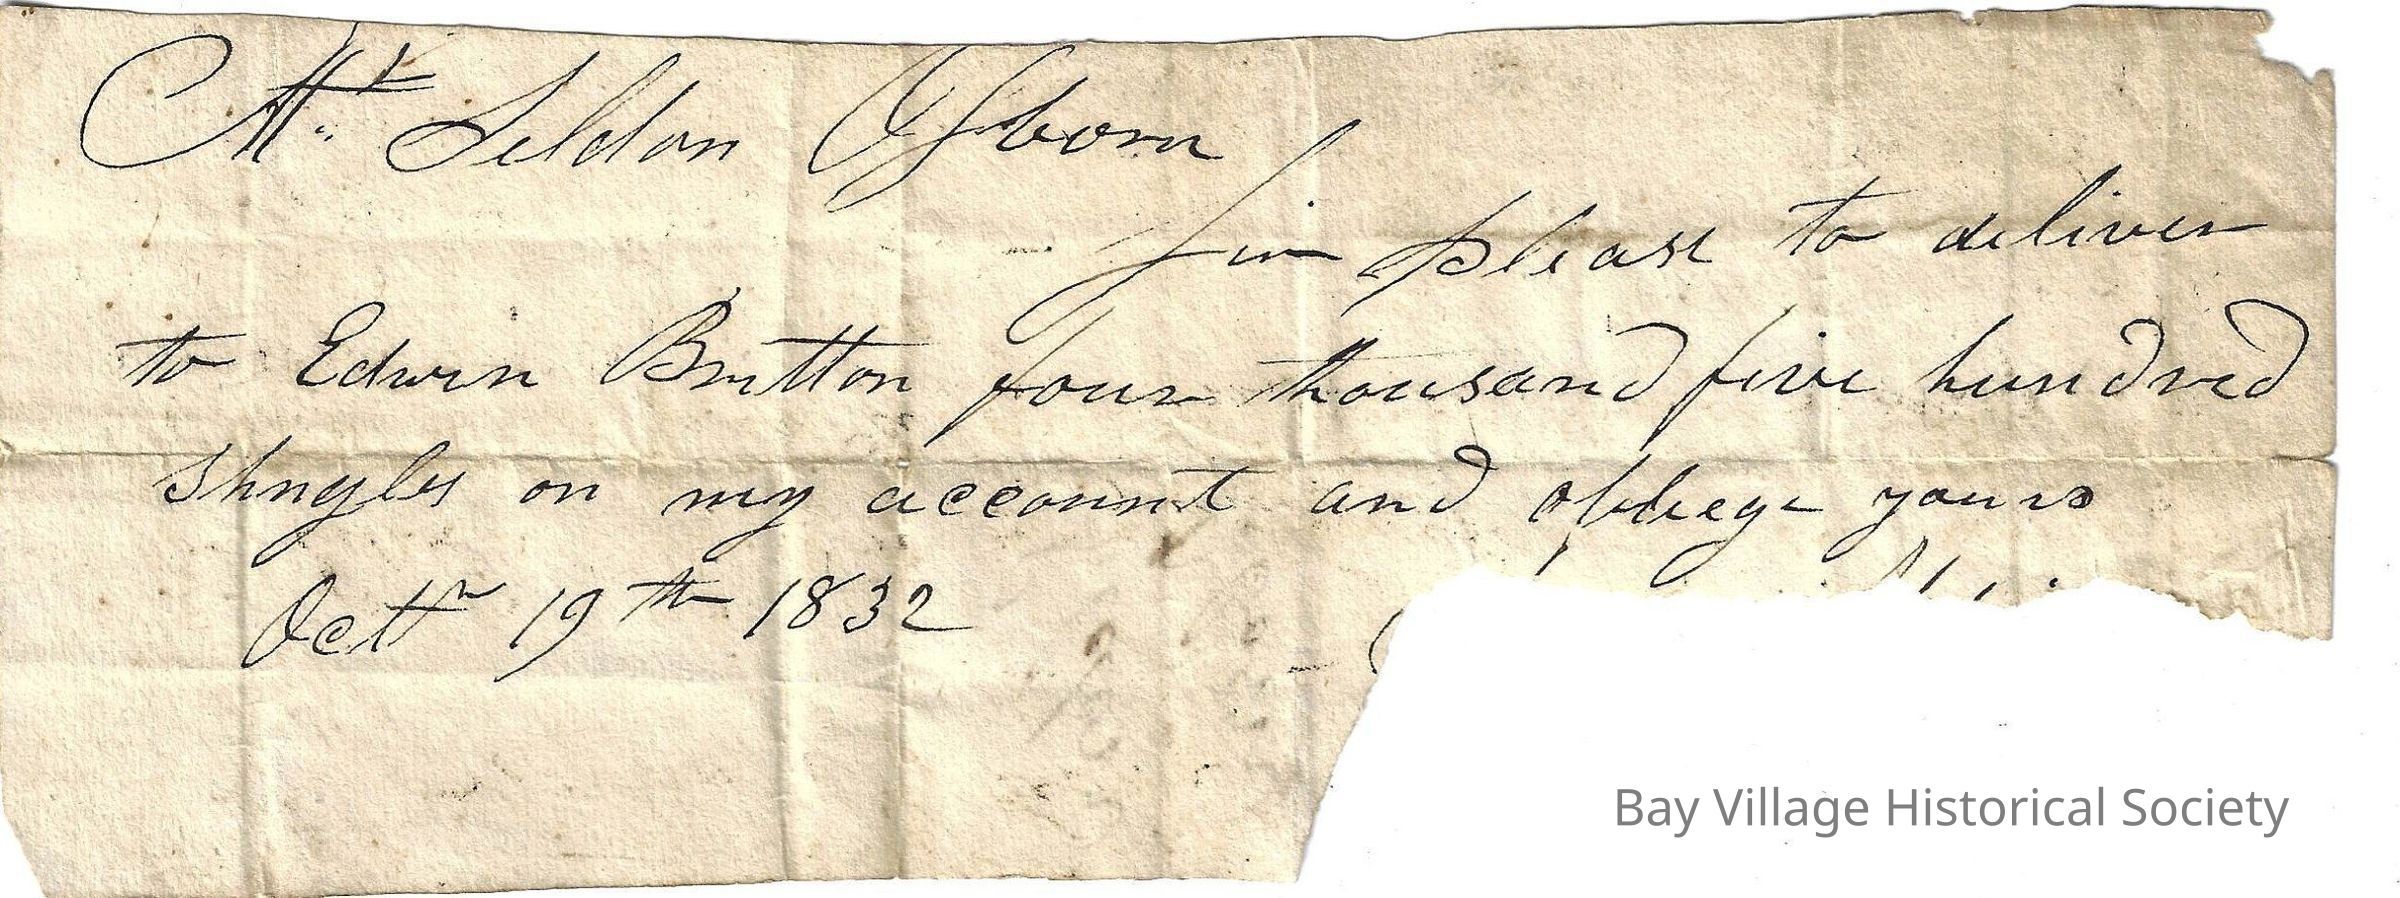 Mr. Seldon Osborn
Sir please to deliver
to Edwin Britton four thousand five hundred
shngles on my account and obbliege yours
Octr 19th 1832
Bay Village Historical Society